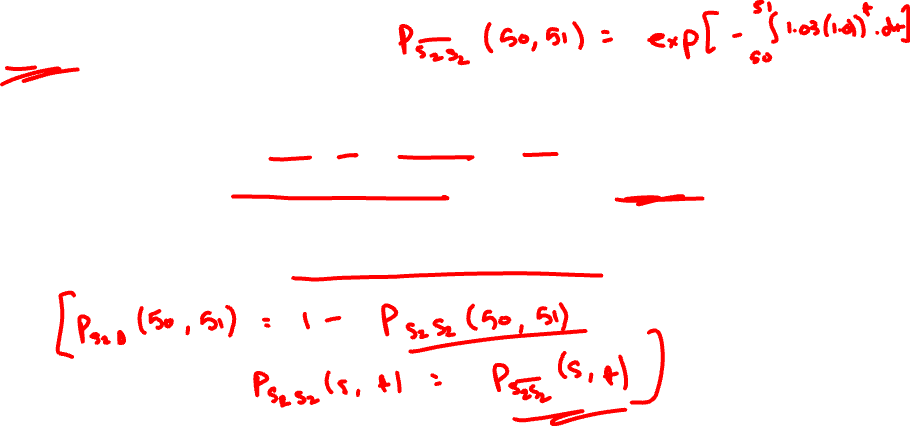 P_{\overline{S_2 S_2}} (50, 51) = exp[ - \int_{50}^{51} 1.03(1.01)^t . dt]
[P_{S_2 D} (50, 51) = 1 - P_{S_2 S_2} (50, 51)
P_{S_2 S_2} (s, t) = P_{\overline{S_2 S_2}} (s, t) ]